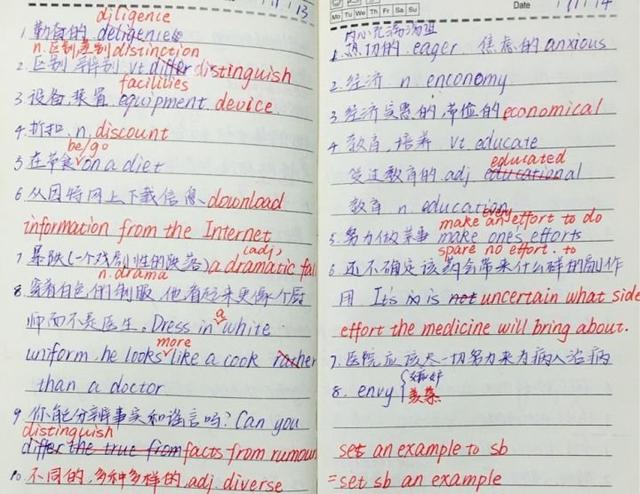 13
diligence
1. 勤奋的 deligence
n. 区别 差别 distinction
2. 区别 辨别 vt differ distinguish
facilities
3. 设备, 装置 equipment, device
4. 折扣 n. discount
be/go
5. 在节食 on a diet
6. 从因特网上下载信息 download
information from the Internet
(adj.)
7. 暴跌(一个戏剧性的跌落) a dramatic fall
n. drama
8. 穿着白色的制服, 他看起来更像个厨
师而不是医生。Dress in a white
more
uniform, he looks like a cook rather
than a doctor
9. 你能分辨事实和谣言吗? Can you
distinguish
differ the true from facts from rumour
10. 不同的, 多种多样的, adj. diverse
Mo Tu We Th Fr Sa Su
Date
14
1. 热切的 eager 焦虑的 anxious
2. 经济 n. enconomy
3. 经济实惠的, 节俭的 economical
4. 教育, 培养 vt educate
educated
受过教育的 adj educational
教育 n. education
make an/every effort to do
5. 努力做某事 make one's efforts
spare no effort to
6. 还不确定该药会带来什么样的副作
用 It's is not uncertain what side
effort the medicine will bring about.
7. 医院应该尽一切努力来为病人治病
8. envy 嫉妒
羡慕
set an example to sb
=set sb an example